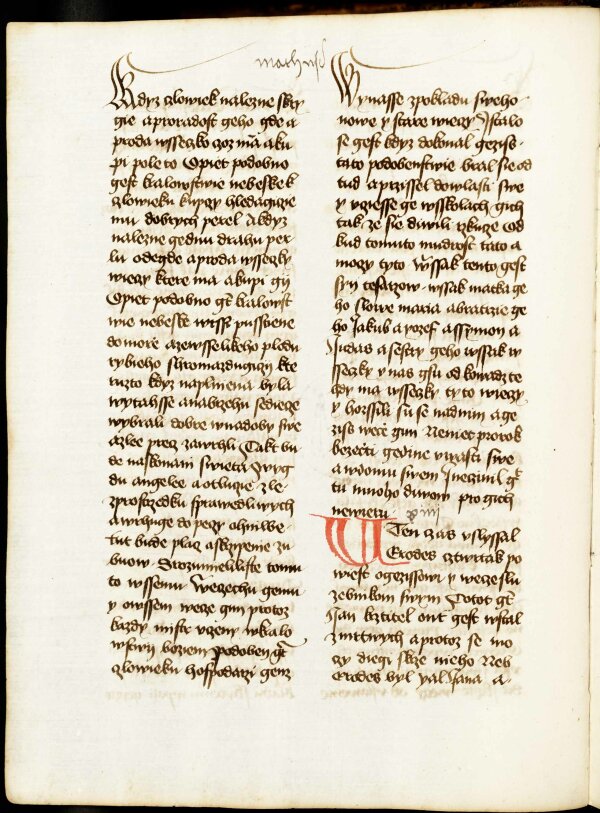 Kdyz czlowiek nalezne skry
gie a proradost geho gde a
proda wsseczko coz ma a ku
pi pole to Opiet podobno
gest kralowstwie nebeske k
czlowieku kupczy hledagicze
mu dobrych perel A kdyz
nalezne gednu drahu per
lu odegde a proda wsseczky
wieczy ktere ma a kupi gij
Opiet podobno gt kralowst
wie nebeske wrssi pusstiene
do more a ze wsselikeho plodu
rybieho shromazdugiczi kte
ruzto kdyz naplniena byla
wytahsse a na brzehu sediecze
wybrali dobre w nadoby swe
a zlee precz zawrhli Takt bu
de na skonani swieta Wyg
du angelee a otlucie zle
z prostrzedku sprawedliwych
a wrhuge do peczy ohniwe
tut bude placz a skrzipenie zu
buow Srozumieliliste tomu
to wssemu Wecechu gemu
y owssem wece gim protoz
kazdy mistr vczeny w kralo
wstwij boziem podoben gt
czlowieku hospodarzi genz
mathuss
Wynasse z pokladu sweho
nowe y stare wieczy I stalo
se gest kdyz dokonal gezis
tato podobenstwie bral sie od
tud a przissel do wlasti swe
y vcziesse ge w sskolach gich
tak ze sie diwili rzkuze Od
kud tomuto mudrost tato a
moczy tyto Wssak tento gest
syn tesarzow wssak matka ge
ho slowe maria a bratrzie ge
ho Jakub a yozef a ssymon a
Judas a sestry geho wssak w
sseczky v nas gsu od konadz te
hdy ma wsseczky tyto wieczy
y horssili su se nad nim a ge
zis wece gim Neniet prorok
bezecti gedine w wlasti swe
a w domu swem I neczinil gt
tu mnoho diwow pro gich
newieru
W Ten czas vslyssal
Erodes cztwrtak po
wiest o gezissowi y wece slu
zebnikom swym Totot gt
Jan krztitel ont gest wstal
z mrtwych a protoz se mo
czy diegi skrze nieho Neb
Erodes byl yal Jana a